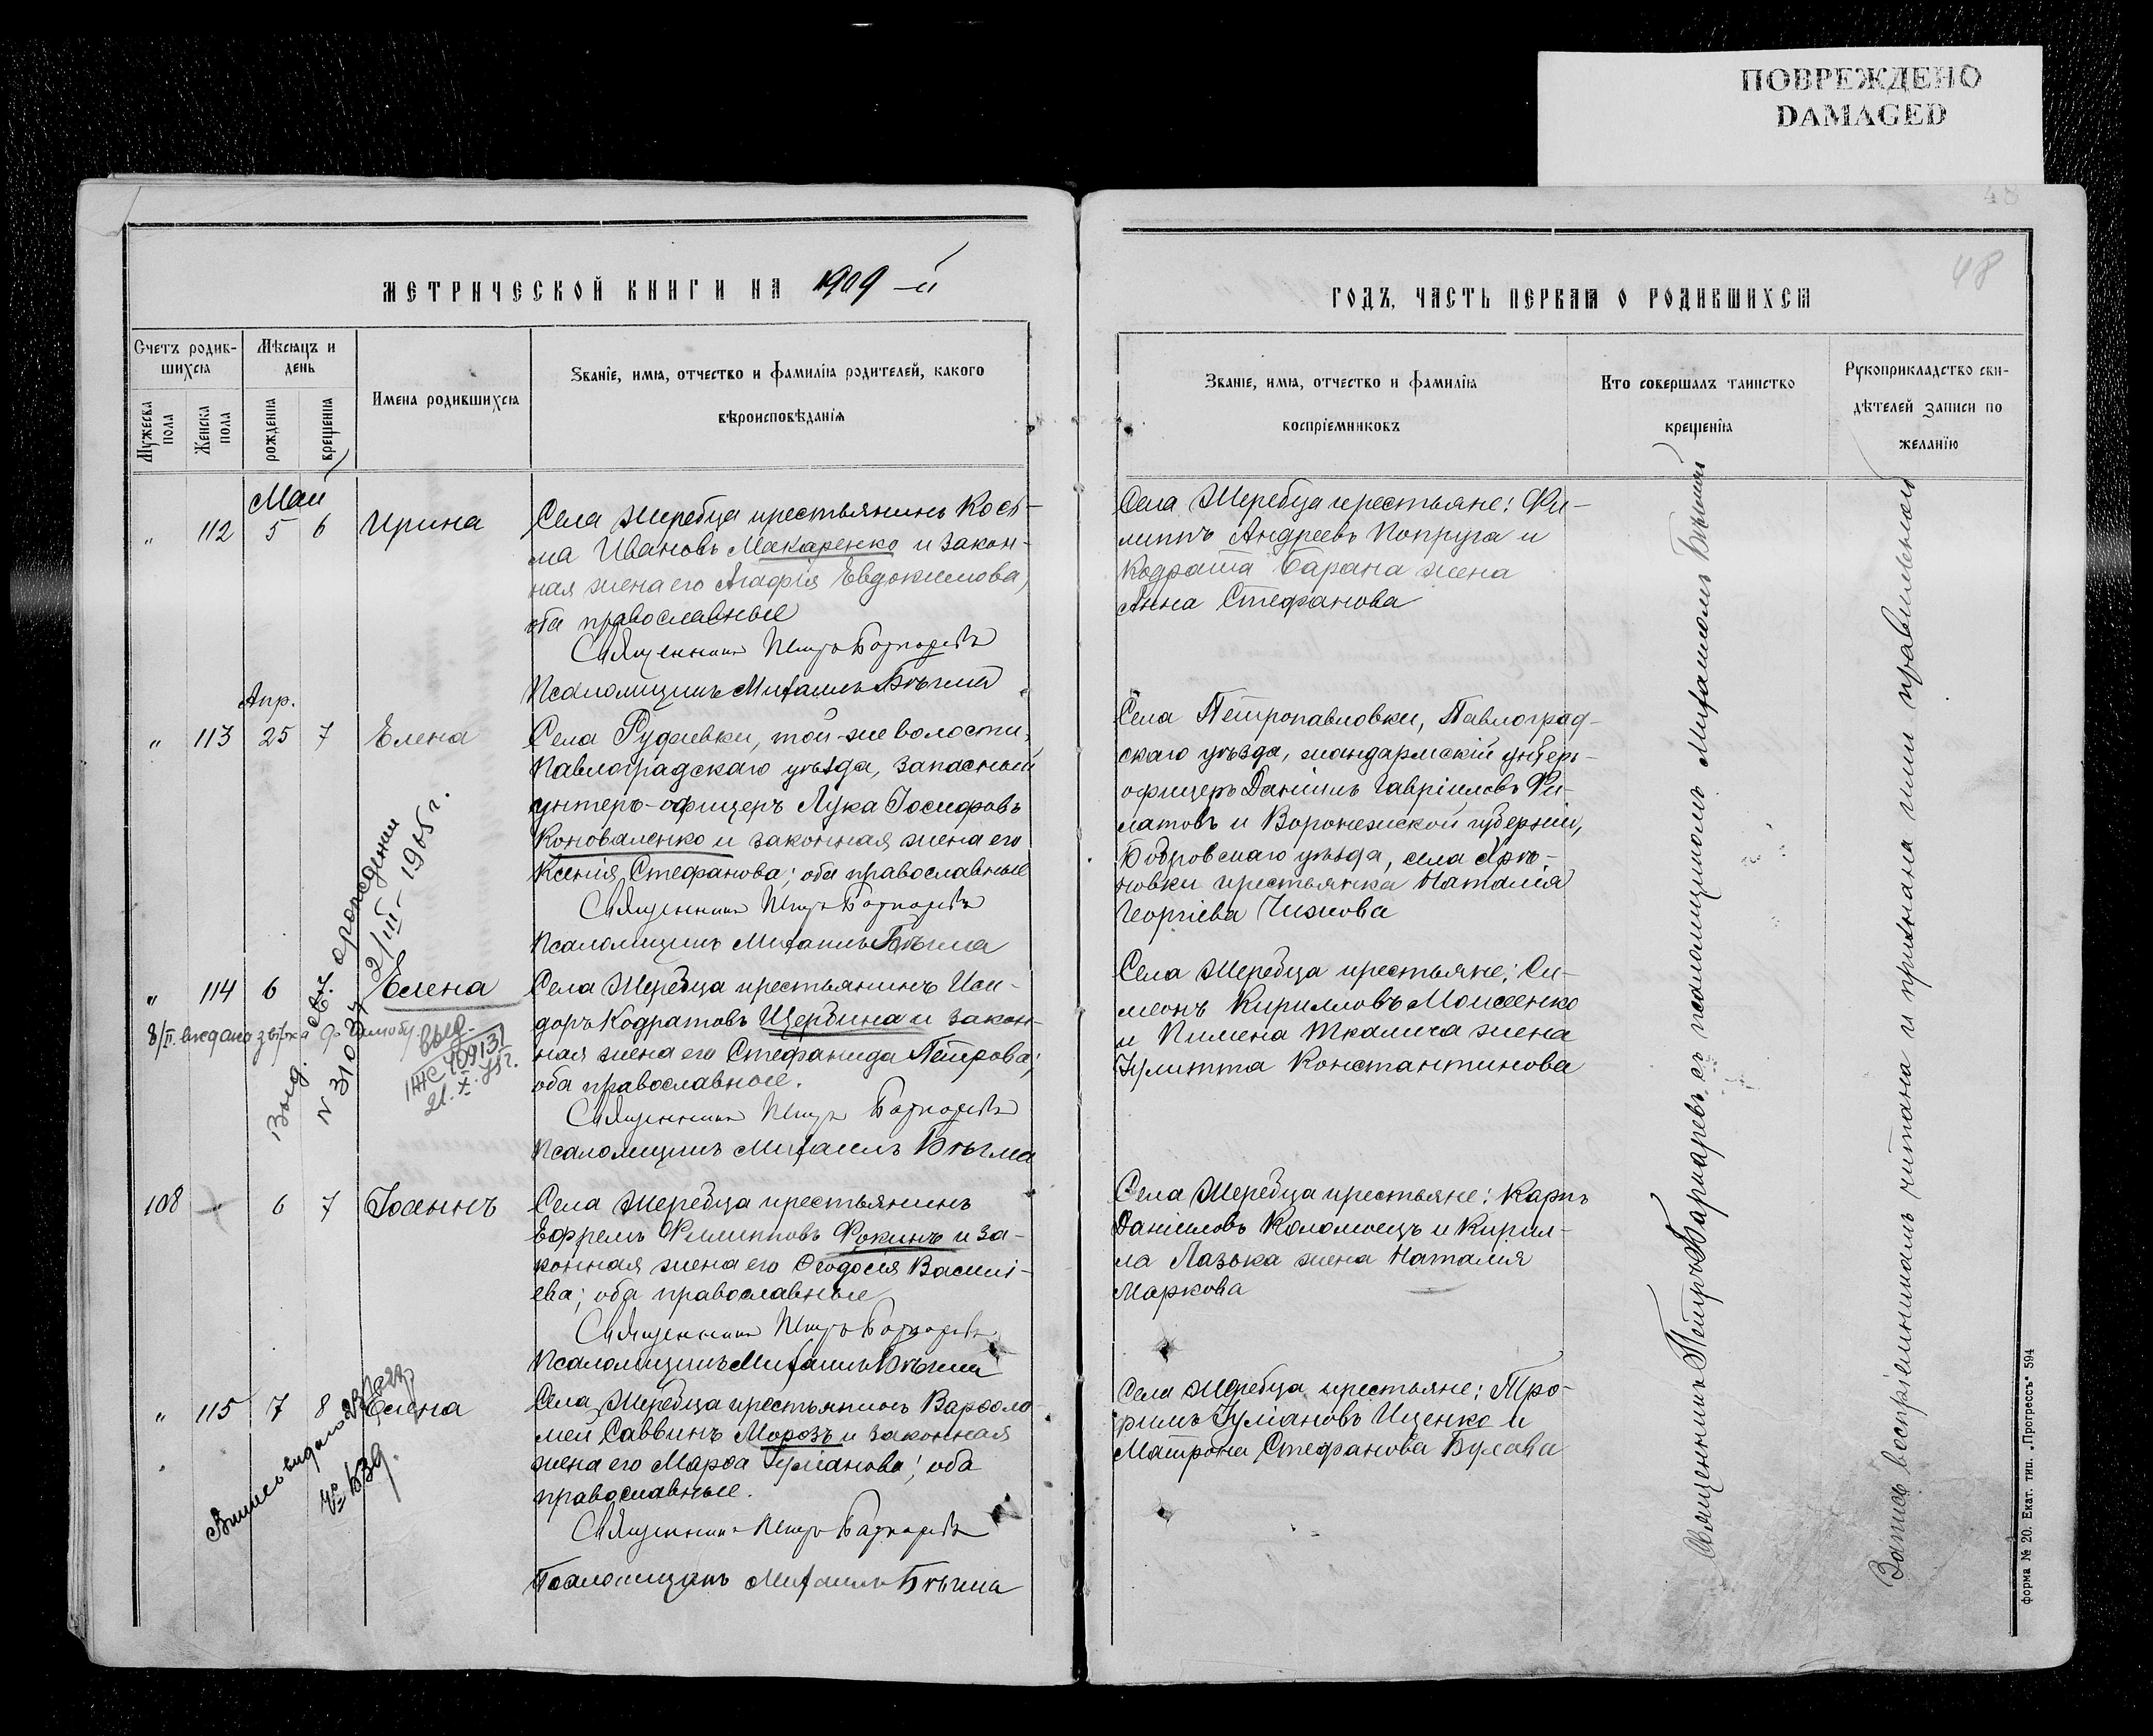 ПОВРЕЖДЕНО
DAMAGED
48
МЕТРИЧЕСКОЙ КНИГИ НА 1909-й
ГОДЪ, ЧАСТЬ ПЕРВАЯ О РОДИВШИХСЯ
Счетъ родив-
шихся
Мѣсяцъ и
день
Мужеска
пола
Женска
пола
рожденія
крещенія
Имена родившихся
Званіе, имя, отчество и фамилія родителей, какого
вѣроисповѣданія
Званіе, имя, отчество и фамилія
воспріемниковъ
Кто совершалъ таинство
крещенія
Рукоприкладство сви-
дѣтелей записи по
желанію
Май
„ 112 5 6 Ирина
Села Жеребца крестьянинъ Кось-
ма Ивановъ Макаренко и закон-
ная жена его Агафія Евдокимова,
оба православные
Священникъ Петръ Боднаревъ
Псаломщикъ Михаилъ Бѣгма
Села Жеребца крестьяне: Фи-
липпъ Андреевъ Попруга и
Кодрата Барана жена
Анна Стефанова
Апр.
„ 113 25 7 Елена
Села , той-же волости,
Павлоградскаго уѣзда, запасный
унтеръ-офицеръ Лука Іосифовъ
Коноваленко и законная жена его
Ксенія Стефанова; оба православные
Священникъ Петръ Боднаревъ
Псаломщикъ Михаилъ Бѣгма
Села Петропавловки, Павлоград-
скаго уѣзда, жандармскій унтеръ-
офицеръ Даніилъ Гавріиловъ Фи-
латовъ и Воронежской губерніи,
Бобровскаго уѣзда, села Хрѣ-
новки крестьянка Наталія
Георгіева Чижова
„ 114 6 7 Елена
Села Жеребца крестьянинъ Иси-
доръ Кодратовъ Щербина и закон-
ная жена его Стефанида Петрова;
оба православное.
Священникъ Петръ Боднаревъ
Псаломщикъ Михаилъ Бѣгма
Села Жеребца крестьяне: Си-
меонъ Кирилловъ Моисеенко
и Пимена Ткалича жена
Іулитта Константинова
8/II. видано
Выд. св. о рождении
N 31034 2/III-1965 г.
выд.
ІЖС 409131
21.X.75г.
108 6 7 Іоаннъ
Села Жеребца крестьянинъ
Ефремъ Филипповъ Фокинъ и за-
конная жена его Ѳеодосія Василі-
ева; оба православные
Священникъ Петръ Боднаревъ
Псаломщикъ Михаилъ Бѣгма
Села Жеребца крестьяне: Карпъ
Даніиловъ Коломоецъ и Кирил-
ла Лазька жена Наталія
Маркова
„ 115 7 8 Елена
Села Жеребца крестьянинъ Варѳоло-
мей Саввинъ Морозъ и законная
жена его Марѳа Іуліанова; оба
православные.
Священникъ Петръ Боднаревъ
Псаломщикъ Михаилъ Бѣгма
Села Жеребца крестьяне: Тро-
фимъ Іуліановъ Иценко и
Матрона Стефанова Булава
№ 639.
Священникъ Петръ Боднаревъ съ псаломщикомъ Михаиломъ Бѣгмой
Запись воспріемникамъ читана и признана ими правильною
форма № 20. Екат. тип. „Прогрессъ" 594